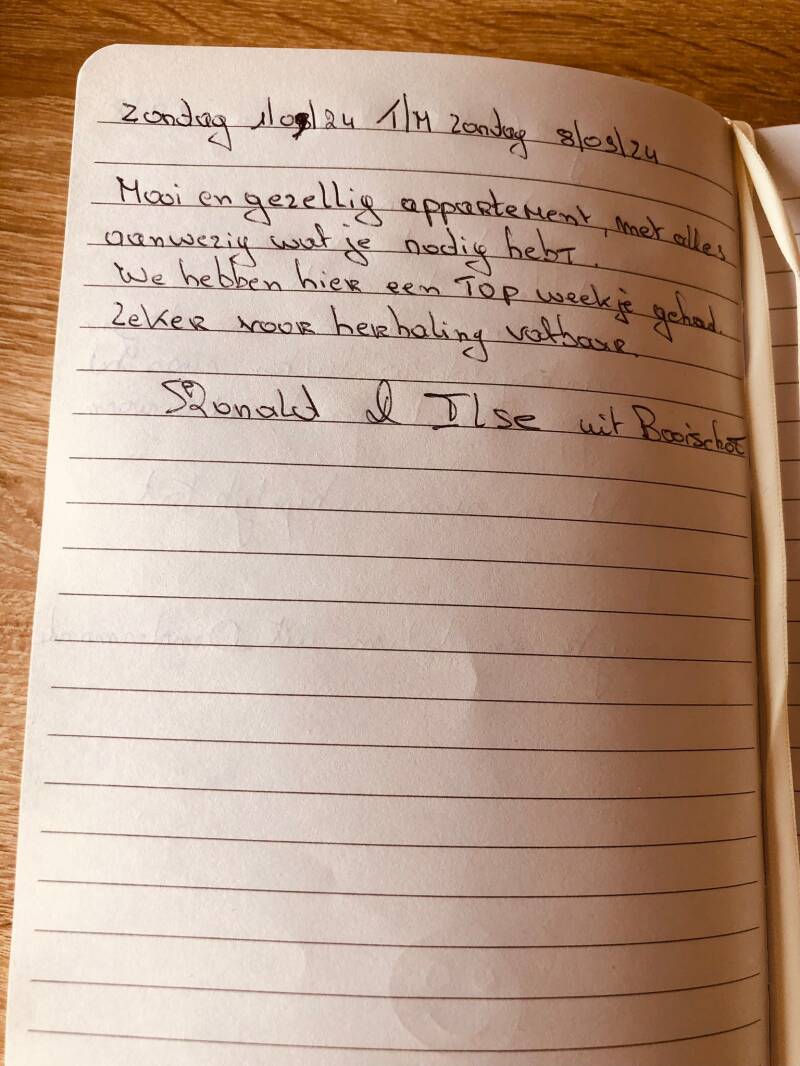 Zondag 1/09/24 T/M Zondag 8/09/24
Mooi en gezellig appartement, met alles
aanwezig wat je nodig hebt.
We hebben hier een TOP weekje gehad.
Zeker voor herhaling vatbaar.
Ronald & Ilse uit Booischot